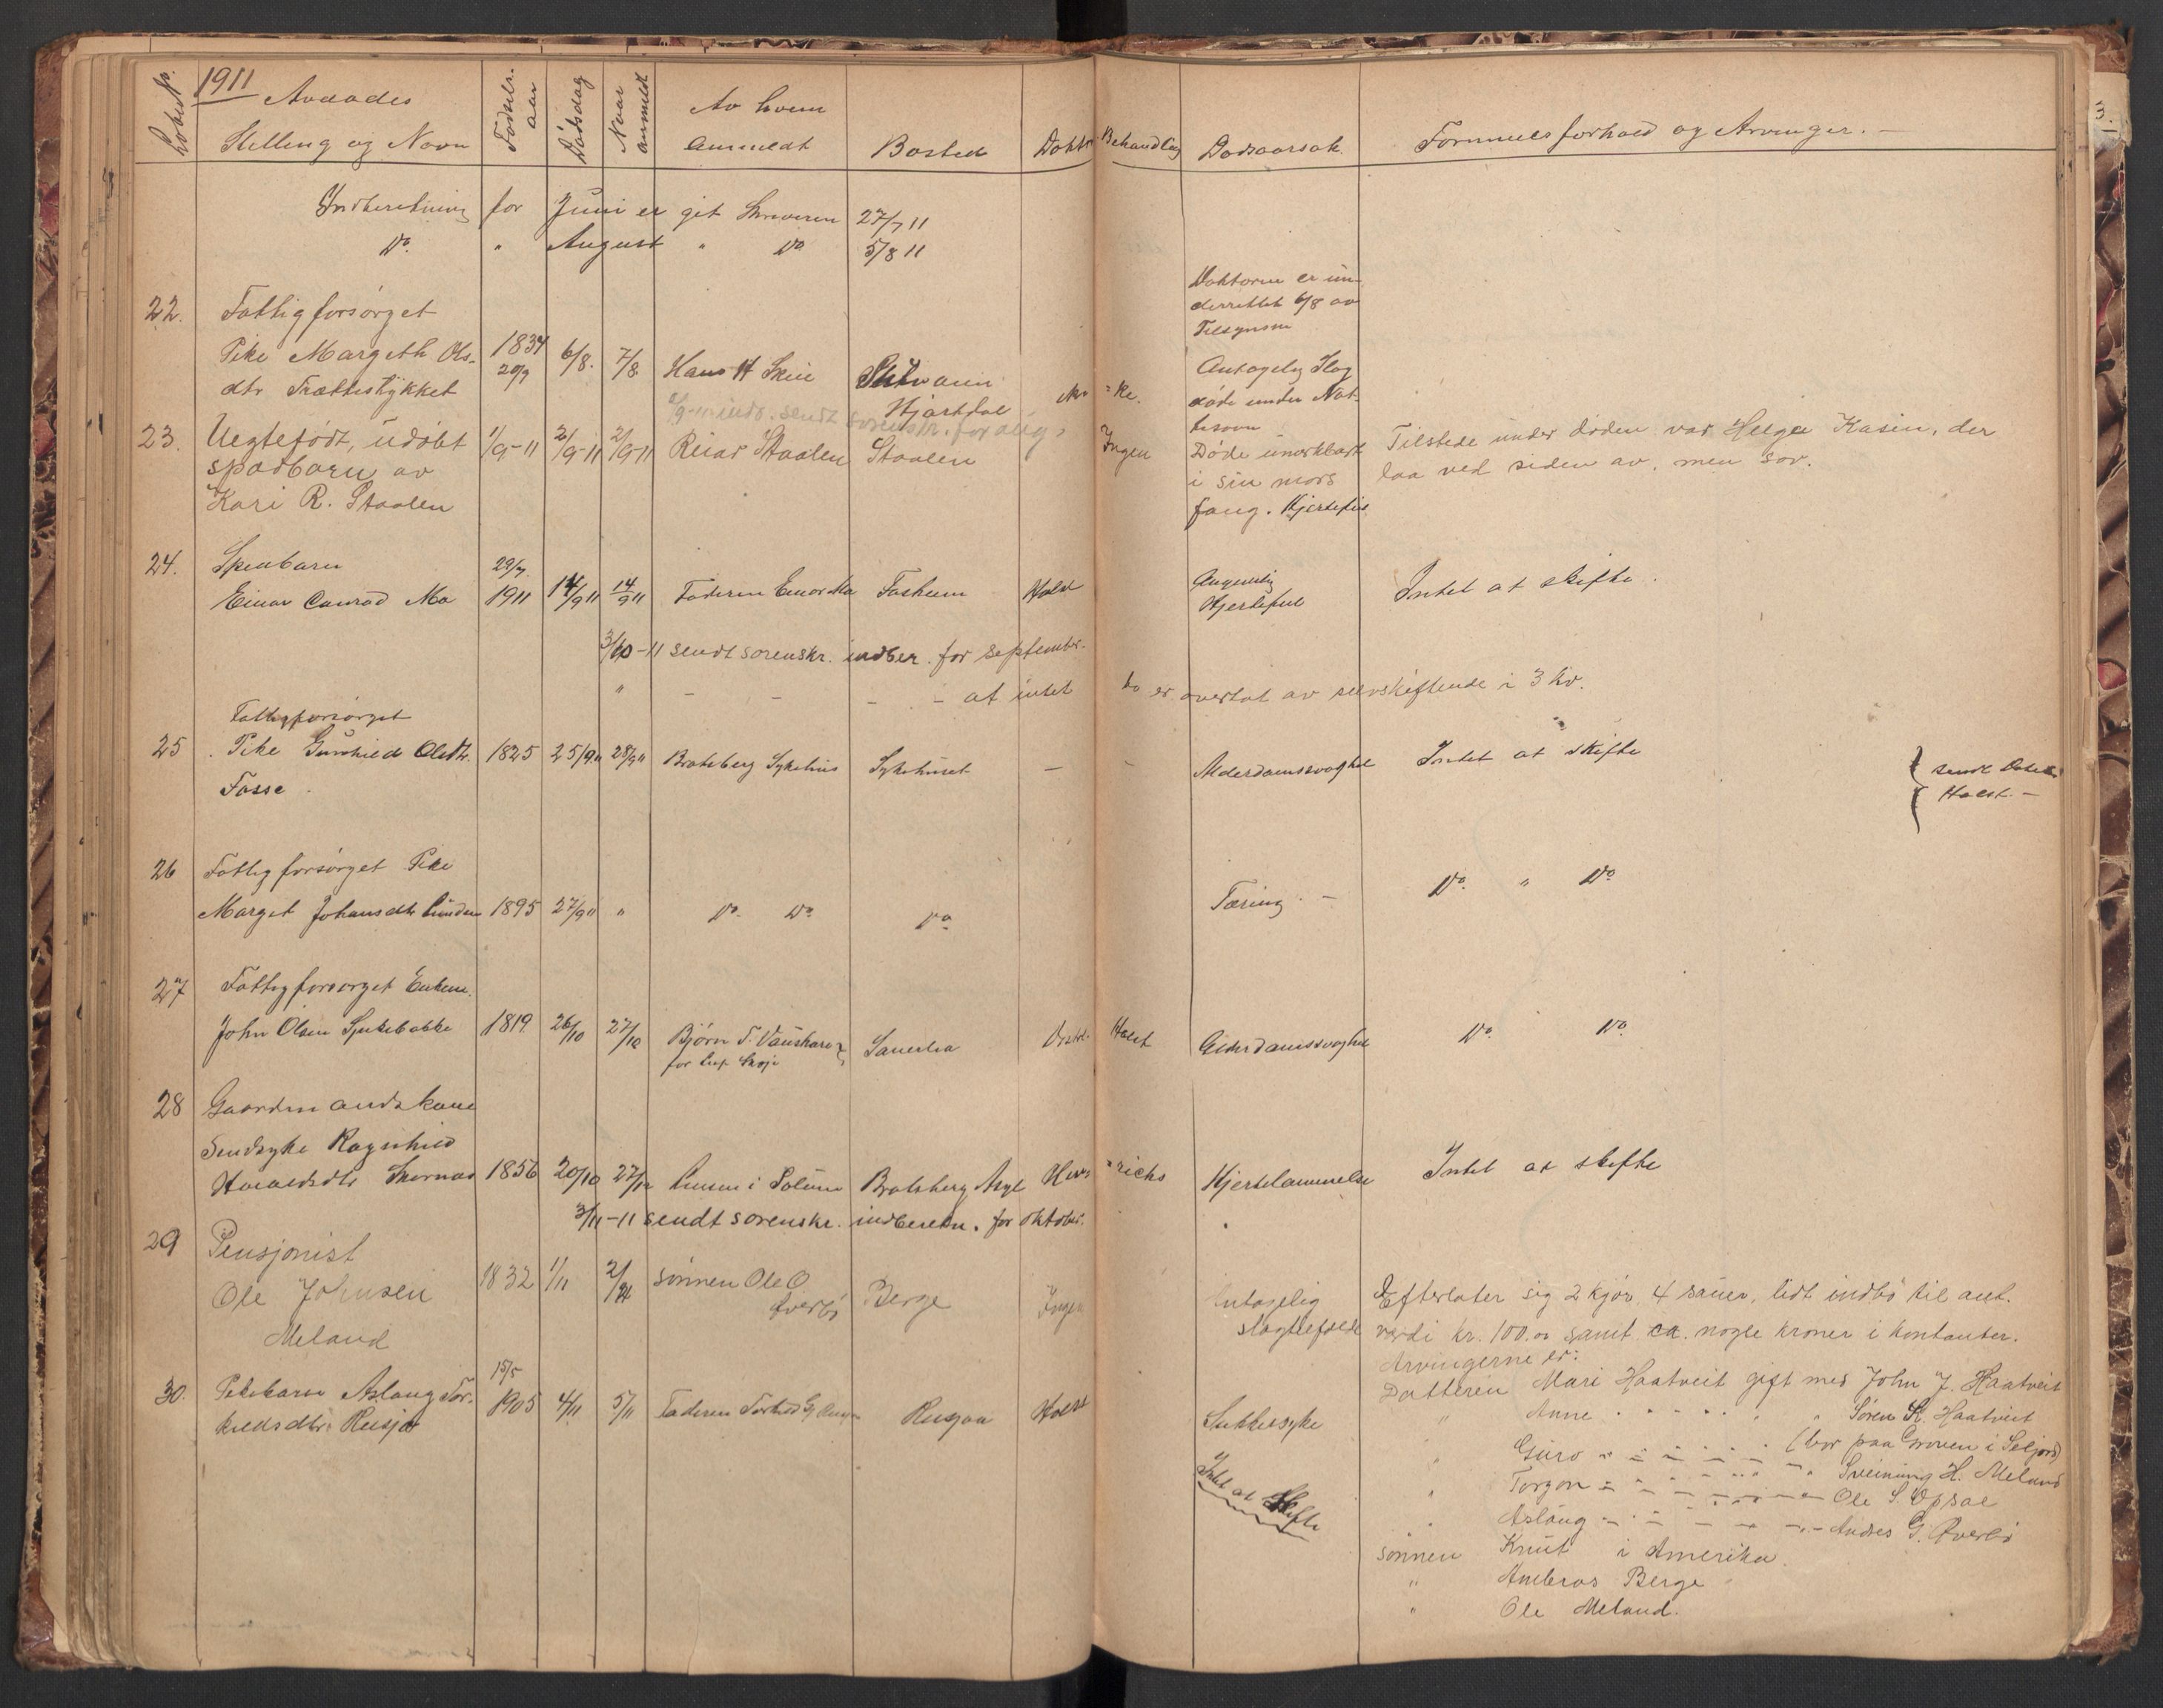 1911
Løbe No.
Avdødes
Stilling og Navn
Fødsels-
aar
Dødsdag
Naar
anmeldt
Av hvem
anmeldt
Bosted
Doktor Behandling
Dødsaarsak.
Formuesforhold og Arvinger. —
Indberetning for Juni er git Skriveren 27/7 11
Do. " August " Do 5/8 11
22.
Fattigforsørget
Pike Margith Ols-
dtr Trættestykket
1834
20/9
6/8.
7/8
Hans H Skeie
Hjartdal
Doktoren er un-
derrettet 6/8 av
Tilsynsm
Antagelig Slag
døde under Nat-
tesøvn
2/9-11 indb. sendt sorenskr. for aug.
23.
Uegtefødt, udøbt
spædbarn av
Kari R. Staalen
1/9-11
2/9-11
2/9-11
Reiar Staalen
Staalen
Ingen
Døde umerkbart
i sin mors
fang. Hjertefeil
Tilstede under døden var Helga Kasin, der
laa ved siden av, men sov.
24.
Spædbarn
Einar Conrad Mo
29/7
1911
14/9 11
14/9 11
Faderen Einar Mo
Foshum
Holst
Angivelig
Hjertefeil
Intet at skifte.
3/10-11 sendt sorenskr. indber. for september.
" - - - - at intet bo er overtat av selvskiftende i 3 kv.
25
Fattigforsørget
Pike Gunhild Olsdtr.
Fosse
1825
25/9 11
28/9 11
Bratsberg Sykehus
Sykehuset
—
-
Alderdomssvaghet
Intet at skifte
sendt Doktor
Holst. —
26
Fattigforsørget Pike
Marget Johansdtr Lunden
1895
27/9 11
"
Do. Do.
Do
Tæring. —
Do. " Do
27
Fattigforsørget Enkem.
John Olsen
1819
26/10
27/10
Bjørn T.
for
Sauerlia
Distr. Holst
Alderdomssvaghet
Do. Do.
28
Gaardmandskone
Sindsyke Ragnhild
1856
20/10
27/10
Lensm i Solum
Bratsberg Asyl
Hjertelammelse
Intet at skifte
3/11-11 sendt sorenskr. indberetn. for oktober.
29
Pensjonist
Ole Johnsen
Meland
1832
1/11
2/11
sønnen Ole O
Øverbø
Berge
Ingen
Antagelig
slagtilfælde
Efterlater sig 2 kjør, 4 sauer, lidt indbo til ant.
verdi kr. 100.00 samt ca. nogle kroner i kontanter.
Arvingerne er:
Datteren Mari Haatveit gift med John J. Haatveit
" Anne " " " " Søren K. Haatveit
" Guro - - - - - (bor paa Groven i Seljord)
" Torgon - - - - - Sveinung H. Meland
" Aslaug - - - - - Ole S. Opsal
- Andres G. Øverbø
sønnen Knut i Amerika.
" Ambros Berge
" Ole Meland.
30.
Pikebarn Aslaug Tor-
kildsdtr. Reisjaa
15/5
1905
4/11
5/11
Faderen Torkild G.
Reisjaa
Holst
Sukkersyke
Intet at Skifte